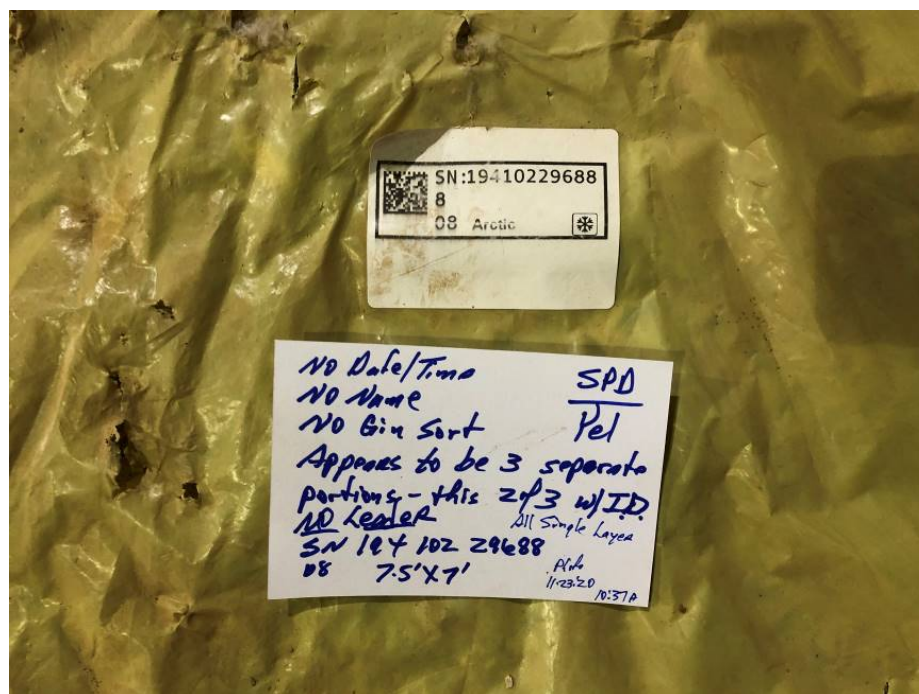 SN:19410229688
8
08 Arctic
NO Date/Time
NO Name
NO Gin Sort
SPD
Yel
Appears to be 3 separate
portions - this 2 of 3 w/I.D.
NO Leader
All Single Layer
SN 194 102 29688
08 7.5'X7'
11-23-20
10:37A